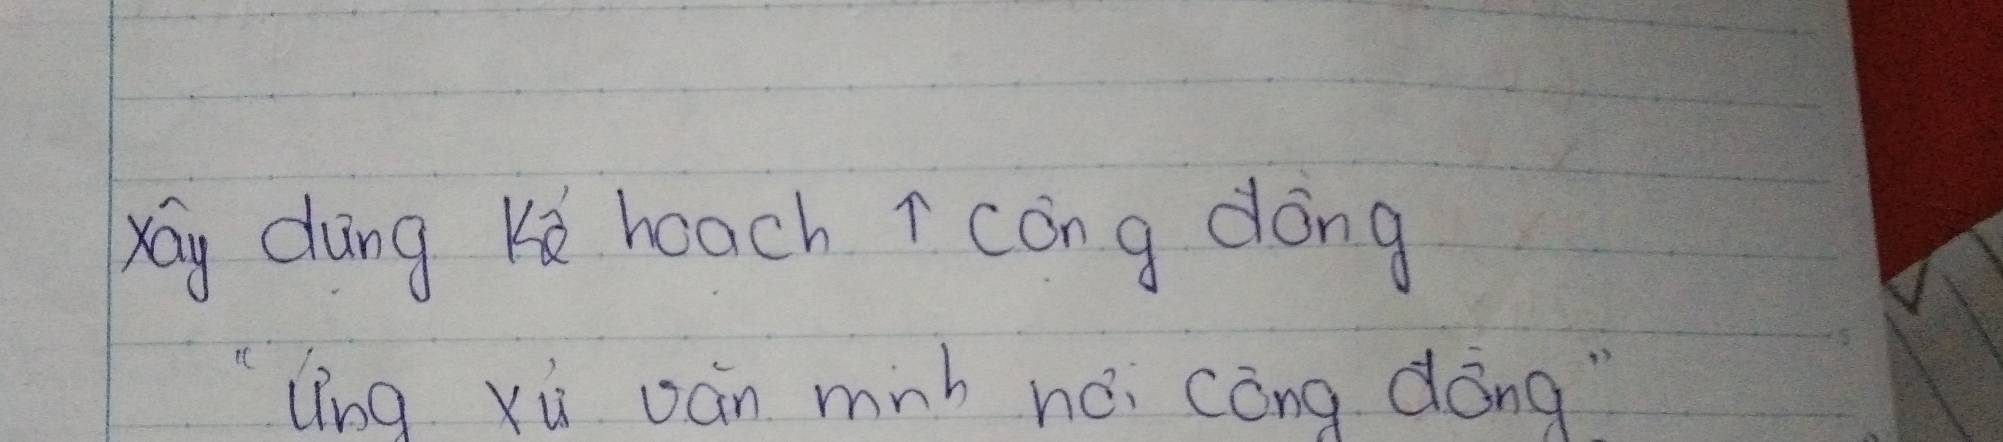 xây dựng kế hoạch ↑ cộng đồng
"Ứng xử văn minh nơi cộng đồng"